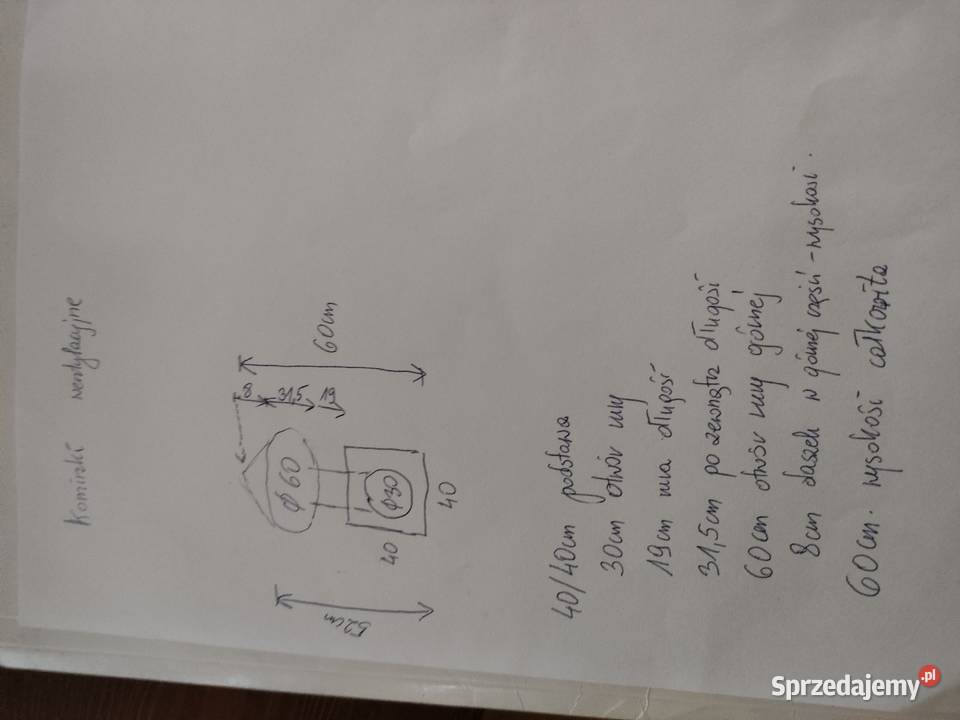 Kominki wentylacyjne
8
31,5
19
60cm
ϕ 60
ϕ30
40
40
52cm
40/40cm podstawa
30cm otwór rury
19cm rura długość
31,5cm po zewnątrz długość
60cm otwór rury górnej
8cm daszek w górnej części - wysokość.
60cm. wysokość całkowita
Sprzedajemy.pl